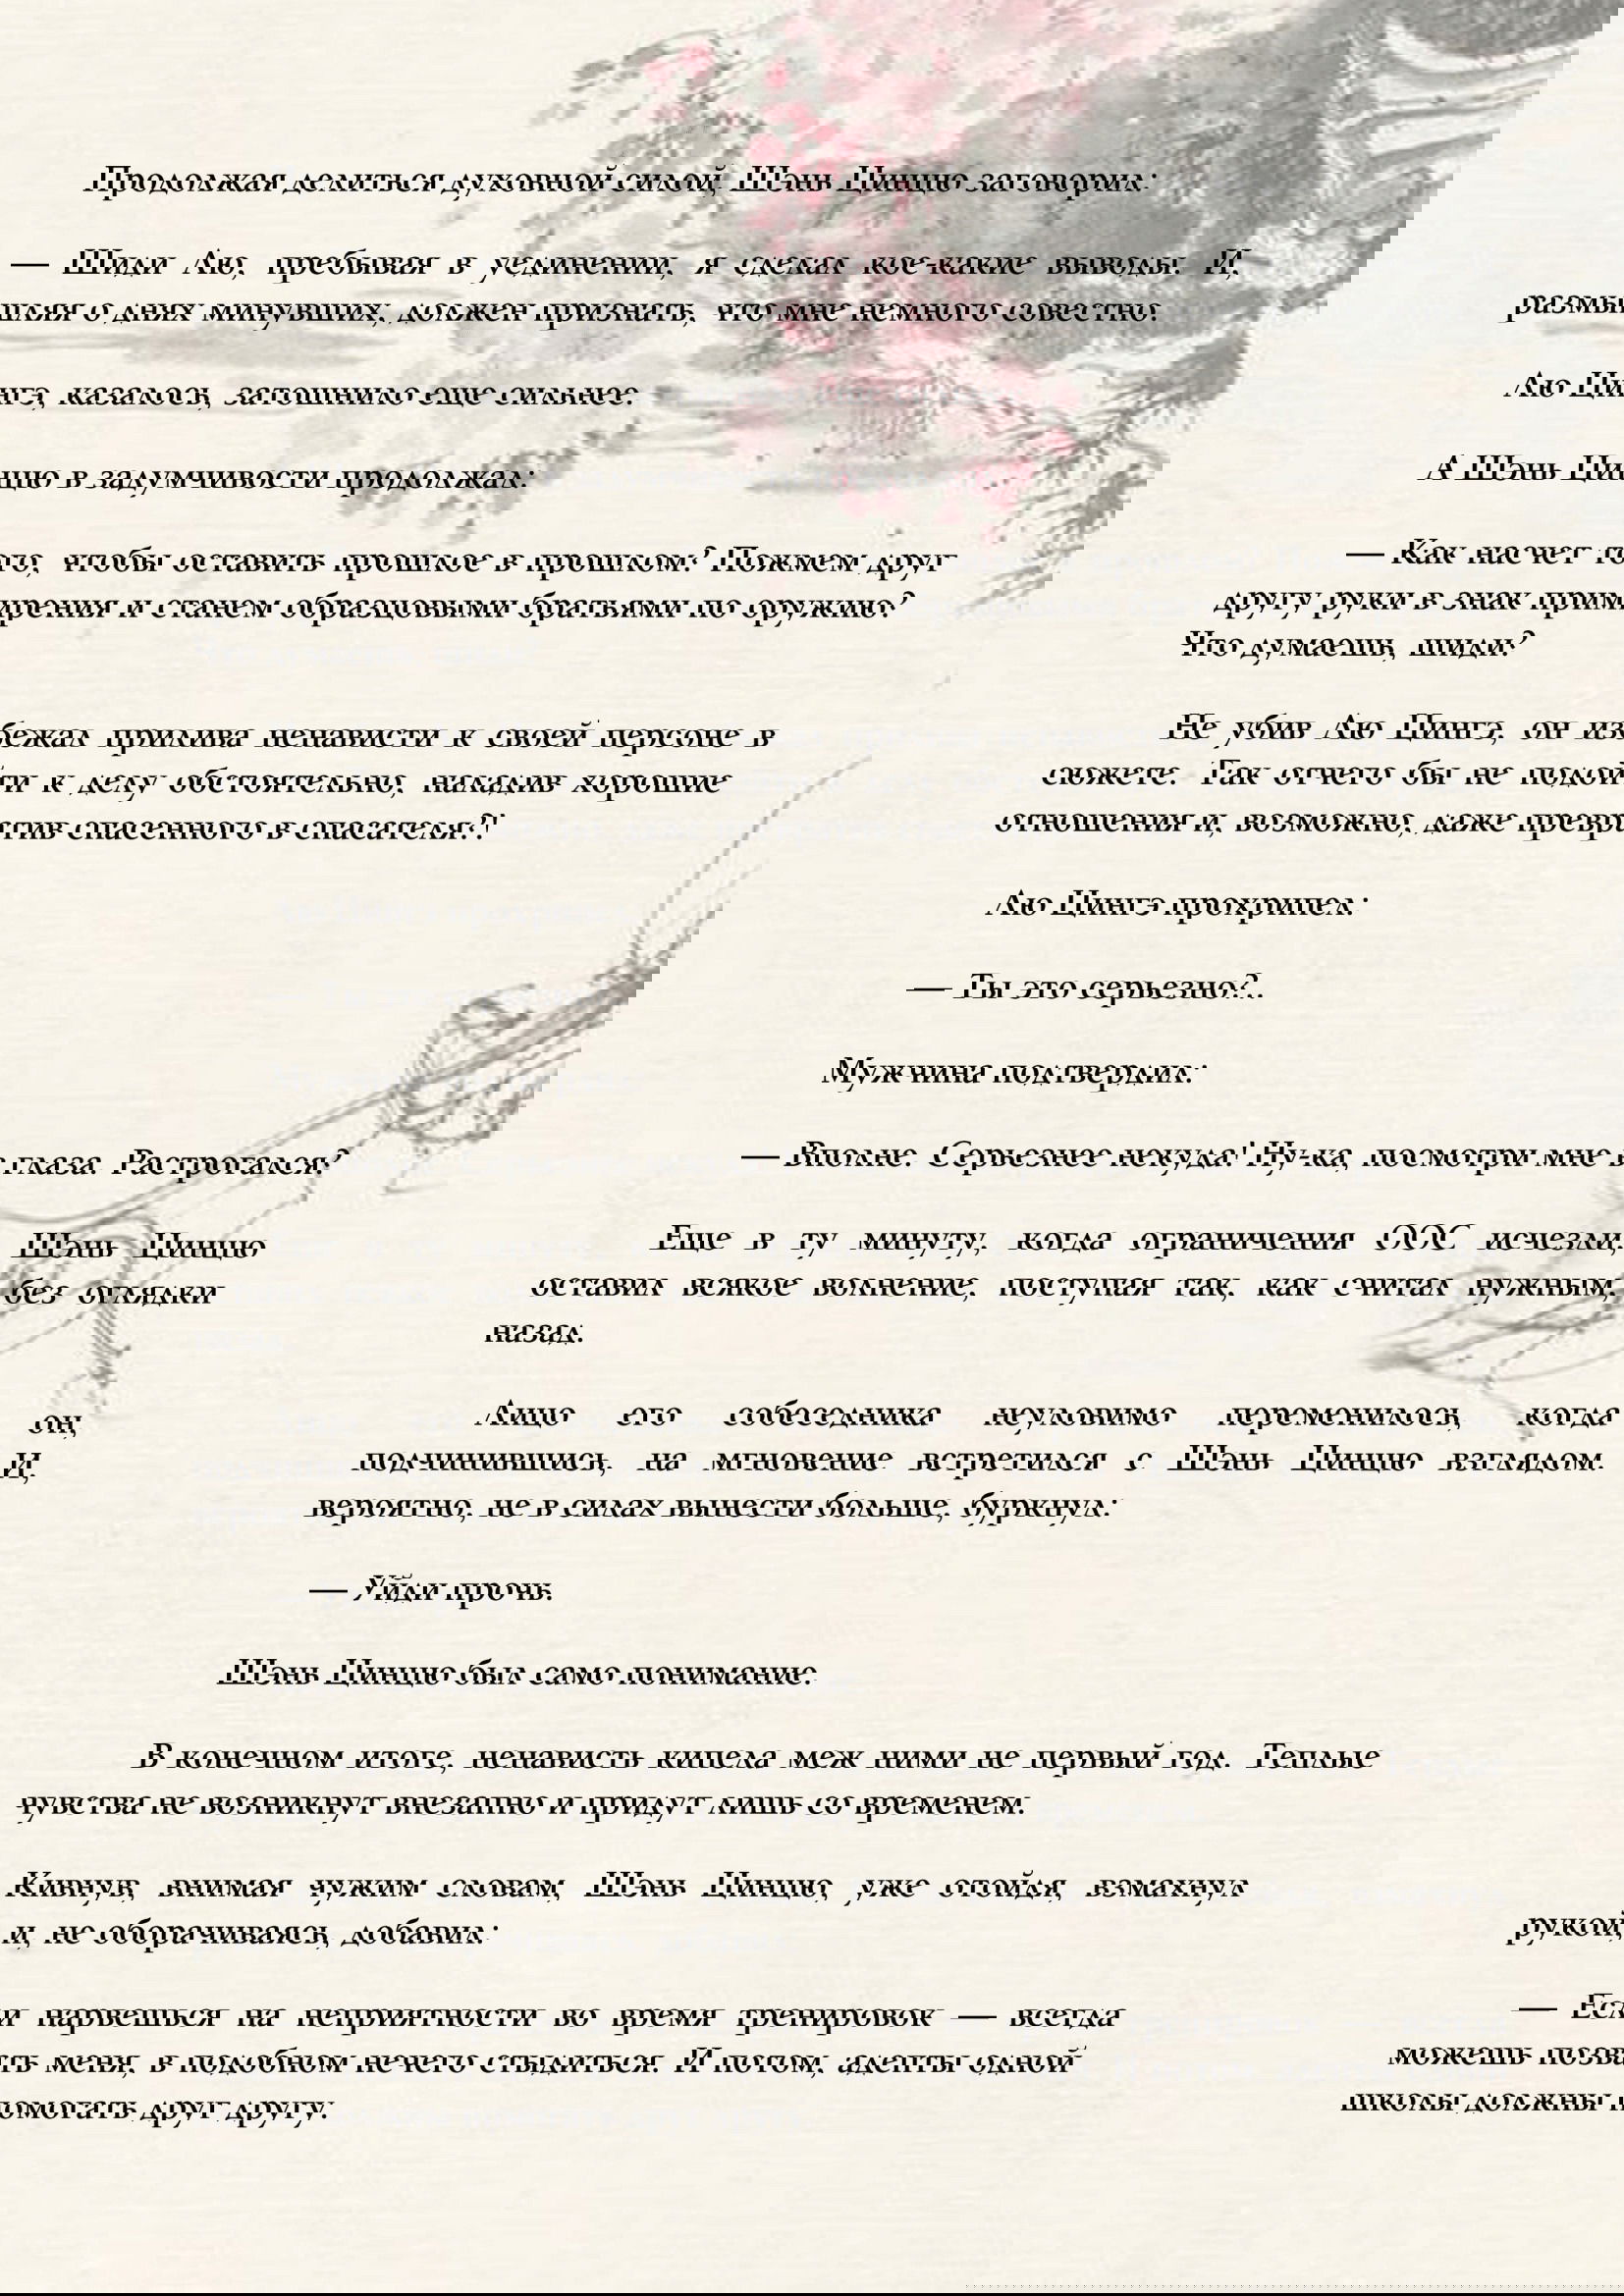 Продолжая делиться духовной силой, Шэнь Цинцю заговорил:
— Шиди Лю, пребывая в уединении, я сделал кое-какие выводы. И,
размышляя о днях минувших, должен признать, что мне немного совестно.
Лю Цингэ, казалось, затошнило еще сильнее.
А Шэнь Цинцю в задумчивости продолжал:
— Как насчет того, чтобы оставить прошлое в прошлом? Пожмем друг
другу руки в знак примирения и станем образцовыми братьями по оружию?
Что думаешь, шиди?
Не убив Лю Цингэ, он избежал прилива ненависти к своей персоне в
сюжете. Так отчего бы не подойти к делу обстоятельно, наладив хорошие
отношения и, возможно, даже превратив спасенного в спасателя?!
Лю Цингэ прохрипел:
— Ты это серьезно?..
Мужчина подтвердил:
— Вполне. Серьезнее некуда! Ну-ка, посмотри мне в глаза. Растрогался?
Еще в ту минуту, когда ограничения ООС исчезли, Шэнь Цинцю
оставил всякое волнение, поступая так, как считал нужным, без оглядки
назад.
Лицо его собеседника неуловимо переменилось, когда он,
подчинившись, на мгновение встретился с Шэнь Цинцю взглядом. И,
вероятно, не в силах вынести больше, буркнул:
— Уйди прочь.
Шэнь Цинцю был само понимание.
В конечном итоге, ненависть кипела меж ними не первый год. Теплые
чувства не возникнут внезапно и придут лишь со временем.
Кивнув, внимая чужим словам, Шэнь Цинцю, уже отойдя, взмахнул
рукой, и, не оборачиваясь, добавил:
— Если нарвешься на неприятности во время тренировок — всегда
можешь позвать меня, в подобном нечего стыдиться. И потом, адепты одной
школы должны помогать друг другу.